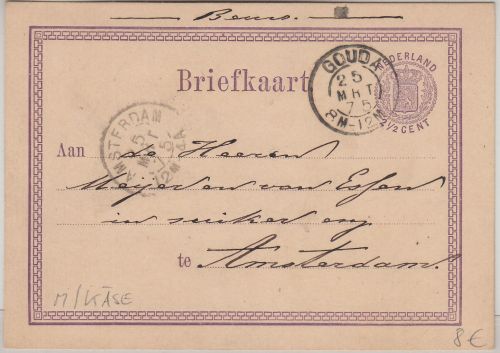 Beurs.
Briefkaart
GOUDA
25
MRT
75
8M-12M
NEDERLAND
2½ CENT
AMSTERDAM
25
MRT
75
Aan de Heeren
Meyer en van Essen
in suiker enz
te Amsterdam.
M/KÄSE
8€